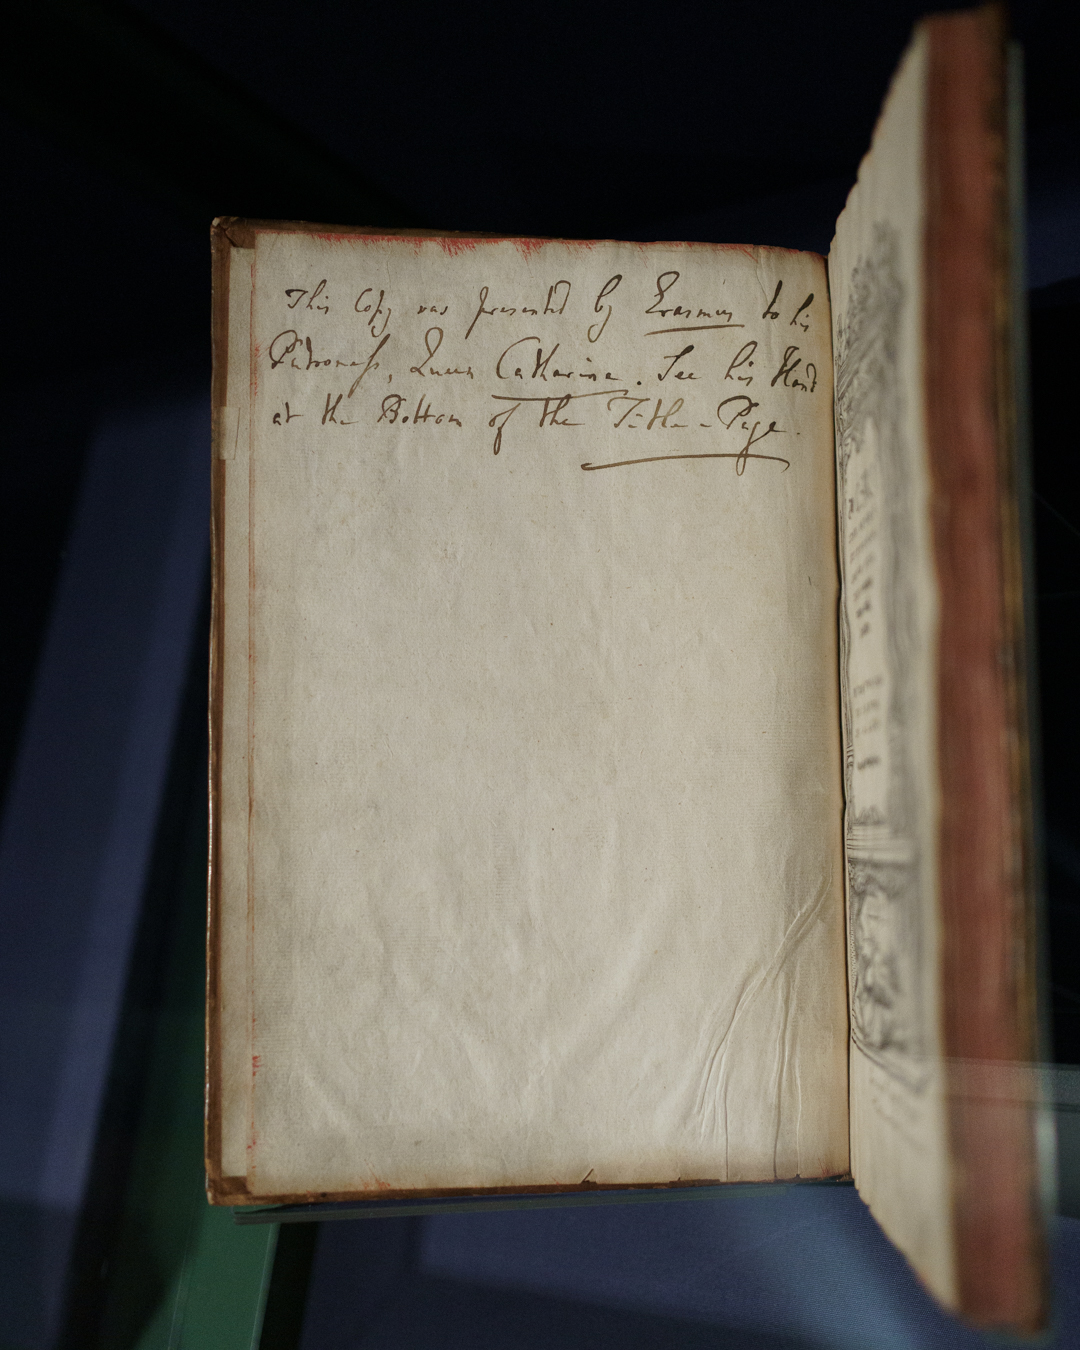 This Copy was presented by Erasmus to his
Patroness, Queen Catharine. See his Hand
at the Bottom of the Title-Page.